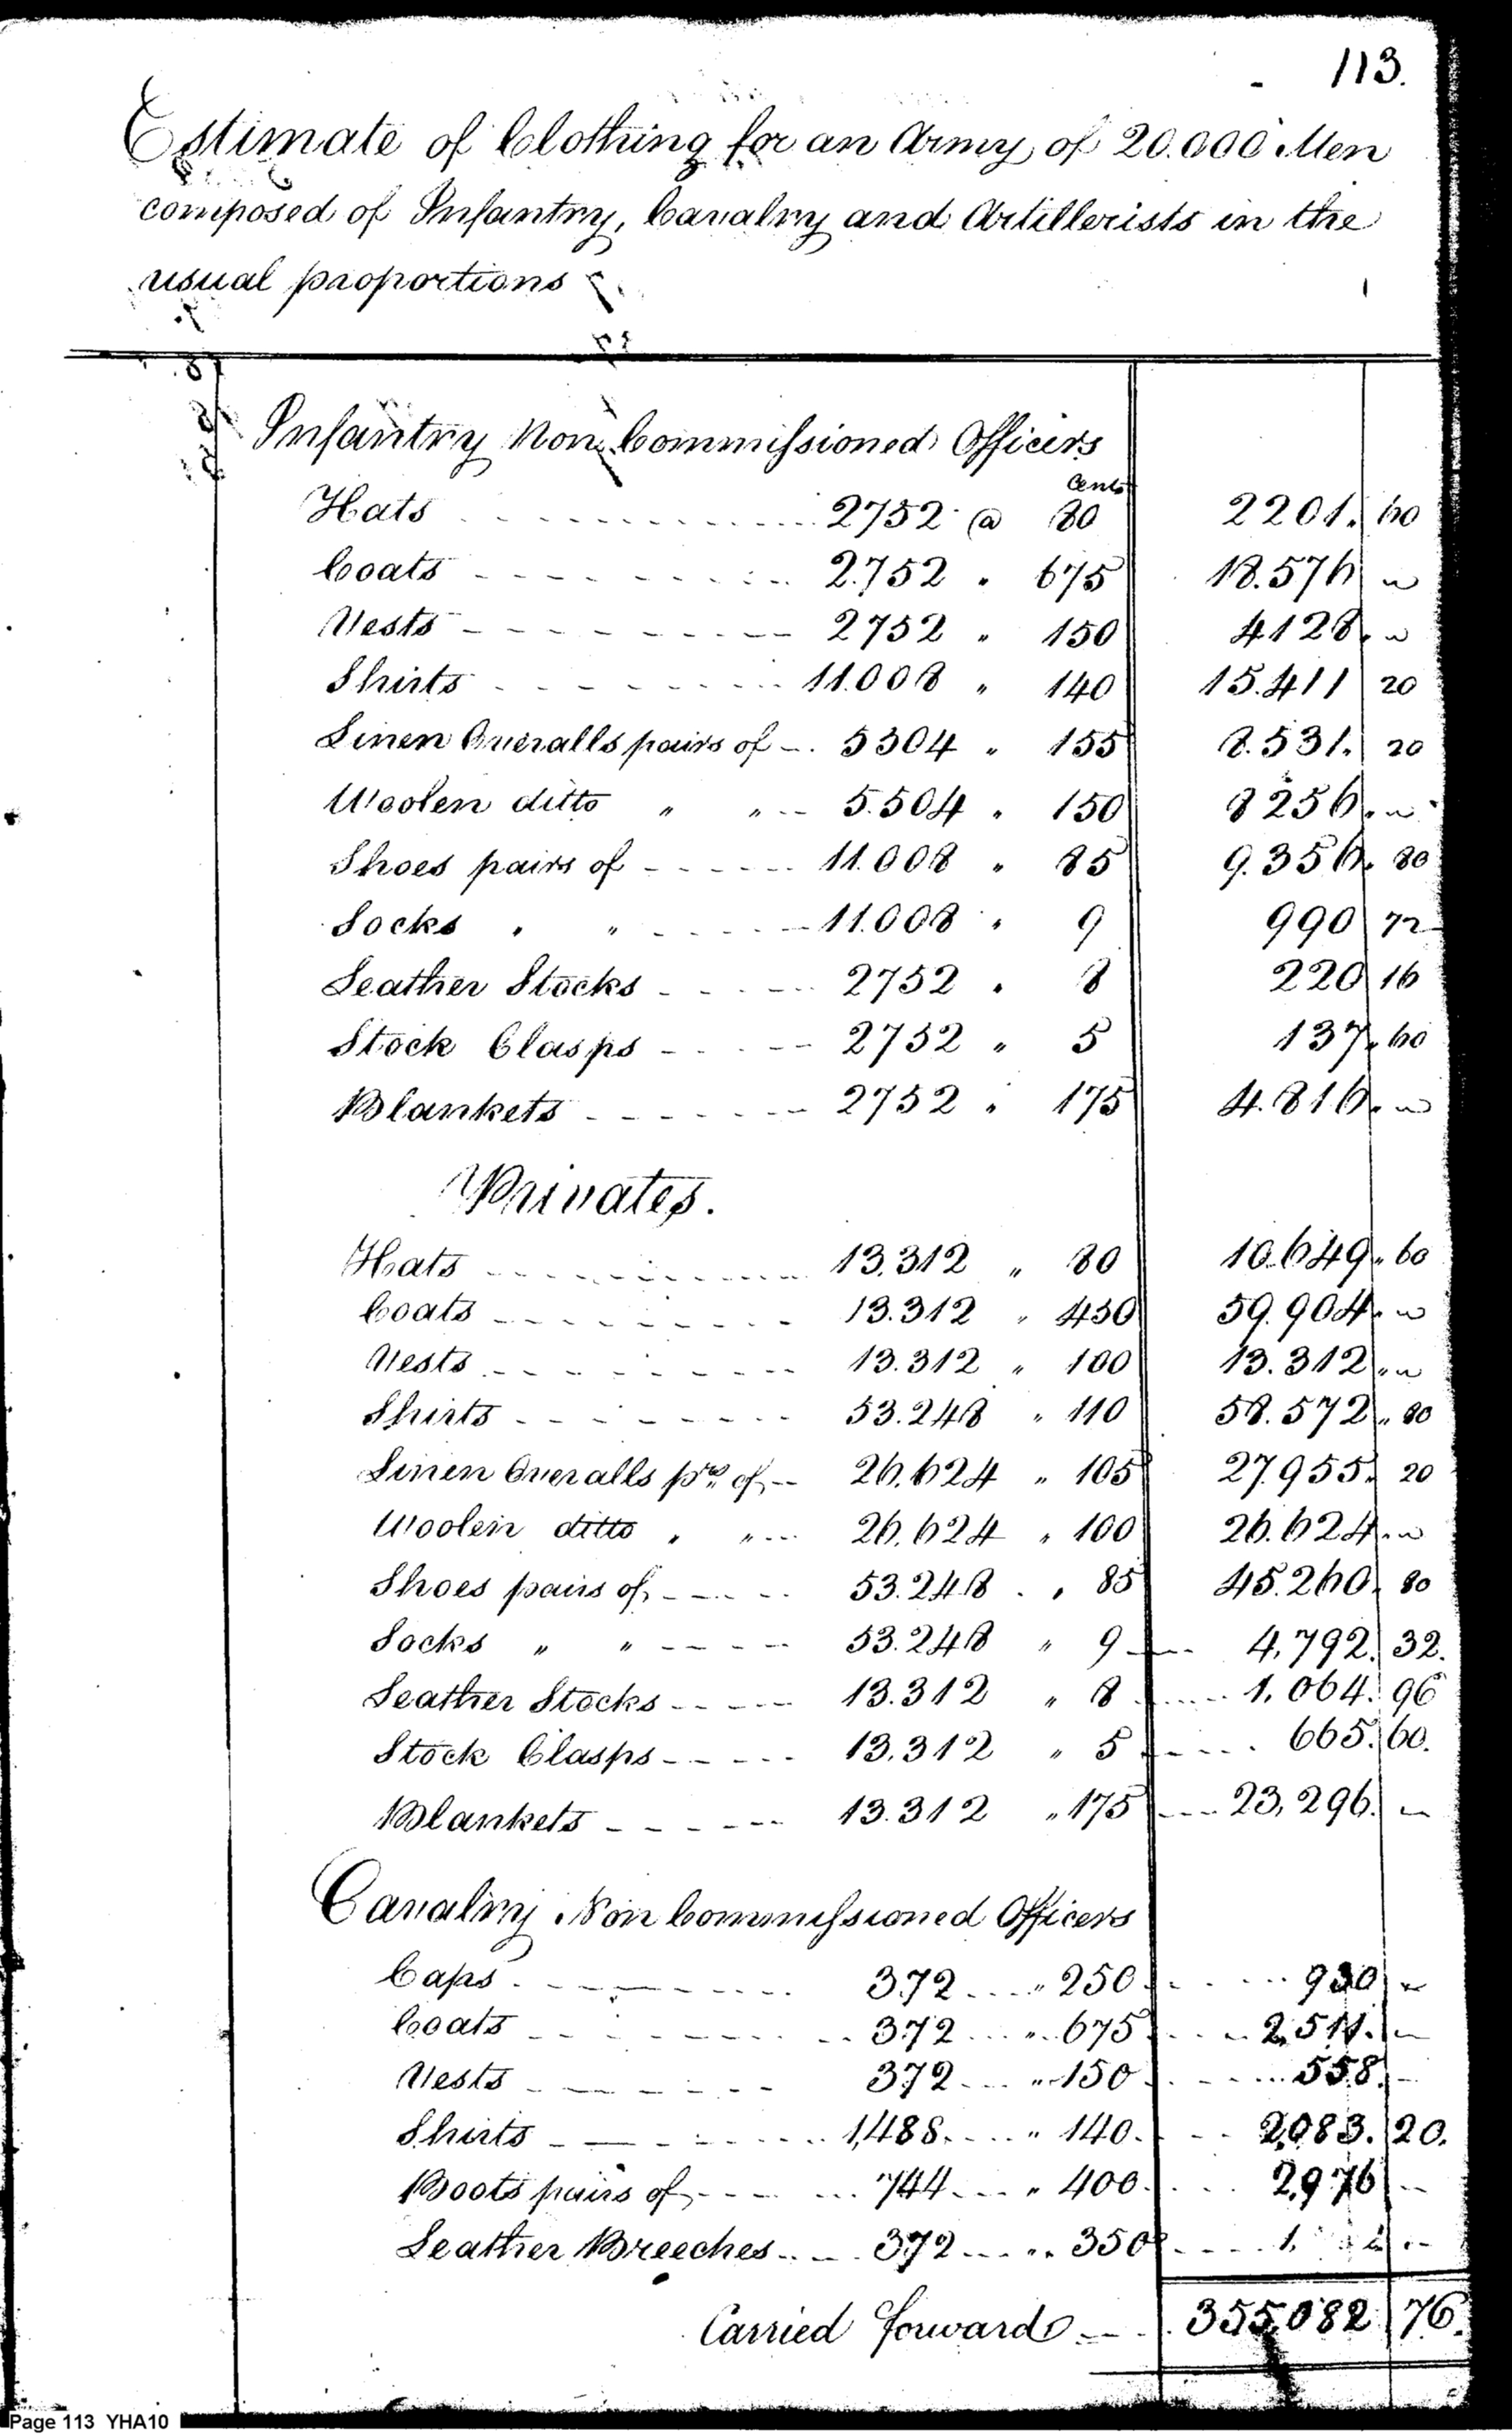 113.
Estimate of Clothing for an Army of 20.000 Men
composed of Infantry, Cavalry and Artillerists in the
usual proportions
Infantry Non Commissioned Officers
Cents
Hats 2752 @ 80 2201. 60
Coats 2.752 " 675 18.576 "
Vests 2752 " 150 4128. "
Shirts 11.008 " 140 15.411 20
Linen Overalls pairs of 5504 " 155 8.531. 20
Woolen ditto " " 5.504 " 150 8256. "
Shoes pairs of 11.008 " 85 9.356. 80
Socks " " 11.008 " 9 990 72
Leather Stocks 2752 " 8 220 16
Stock Clasps 2752 " 5 137. 60
Blankets 2752 " 175 4.816. "
Privates.
Hats 13.312 " 80 10.649. 60
Coats 13.312 " 450 59.904. "
Vests 13.312 " 100 13.312. "
Shirts 53.248 " 110 58.572. 80
Linen Overalls prs. of 26.624 " 105 27.955. 20
Woolen ditto " " 26.624 " 100 26.624. "
Shoes pairs of 53.248 " 85 45.260. 80
Socks " " 53.248 " 9 4,792. 32.
Leather Stocks 13.312 " 8 1,064. 96
Stock Clasps 13.312 " 5 665. 60.
Blankets 13.312 " 175 23,296. —
Cavalry Non Commissioned Officers
Caps 372 " 250 930 —
Coats 372 " 675 2,511. —
Vests 372 " 150 558. —
Shirts 1,488 " 140 2,083. 20.
Boots pairs of 744 " 400 2,976 —
Leather Breeches 372 " 350
Carried forward 355,082 76.
Page 113 YHA10